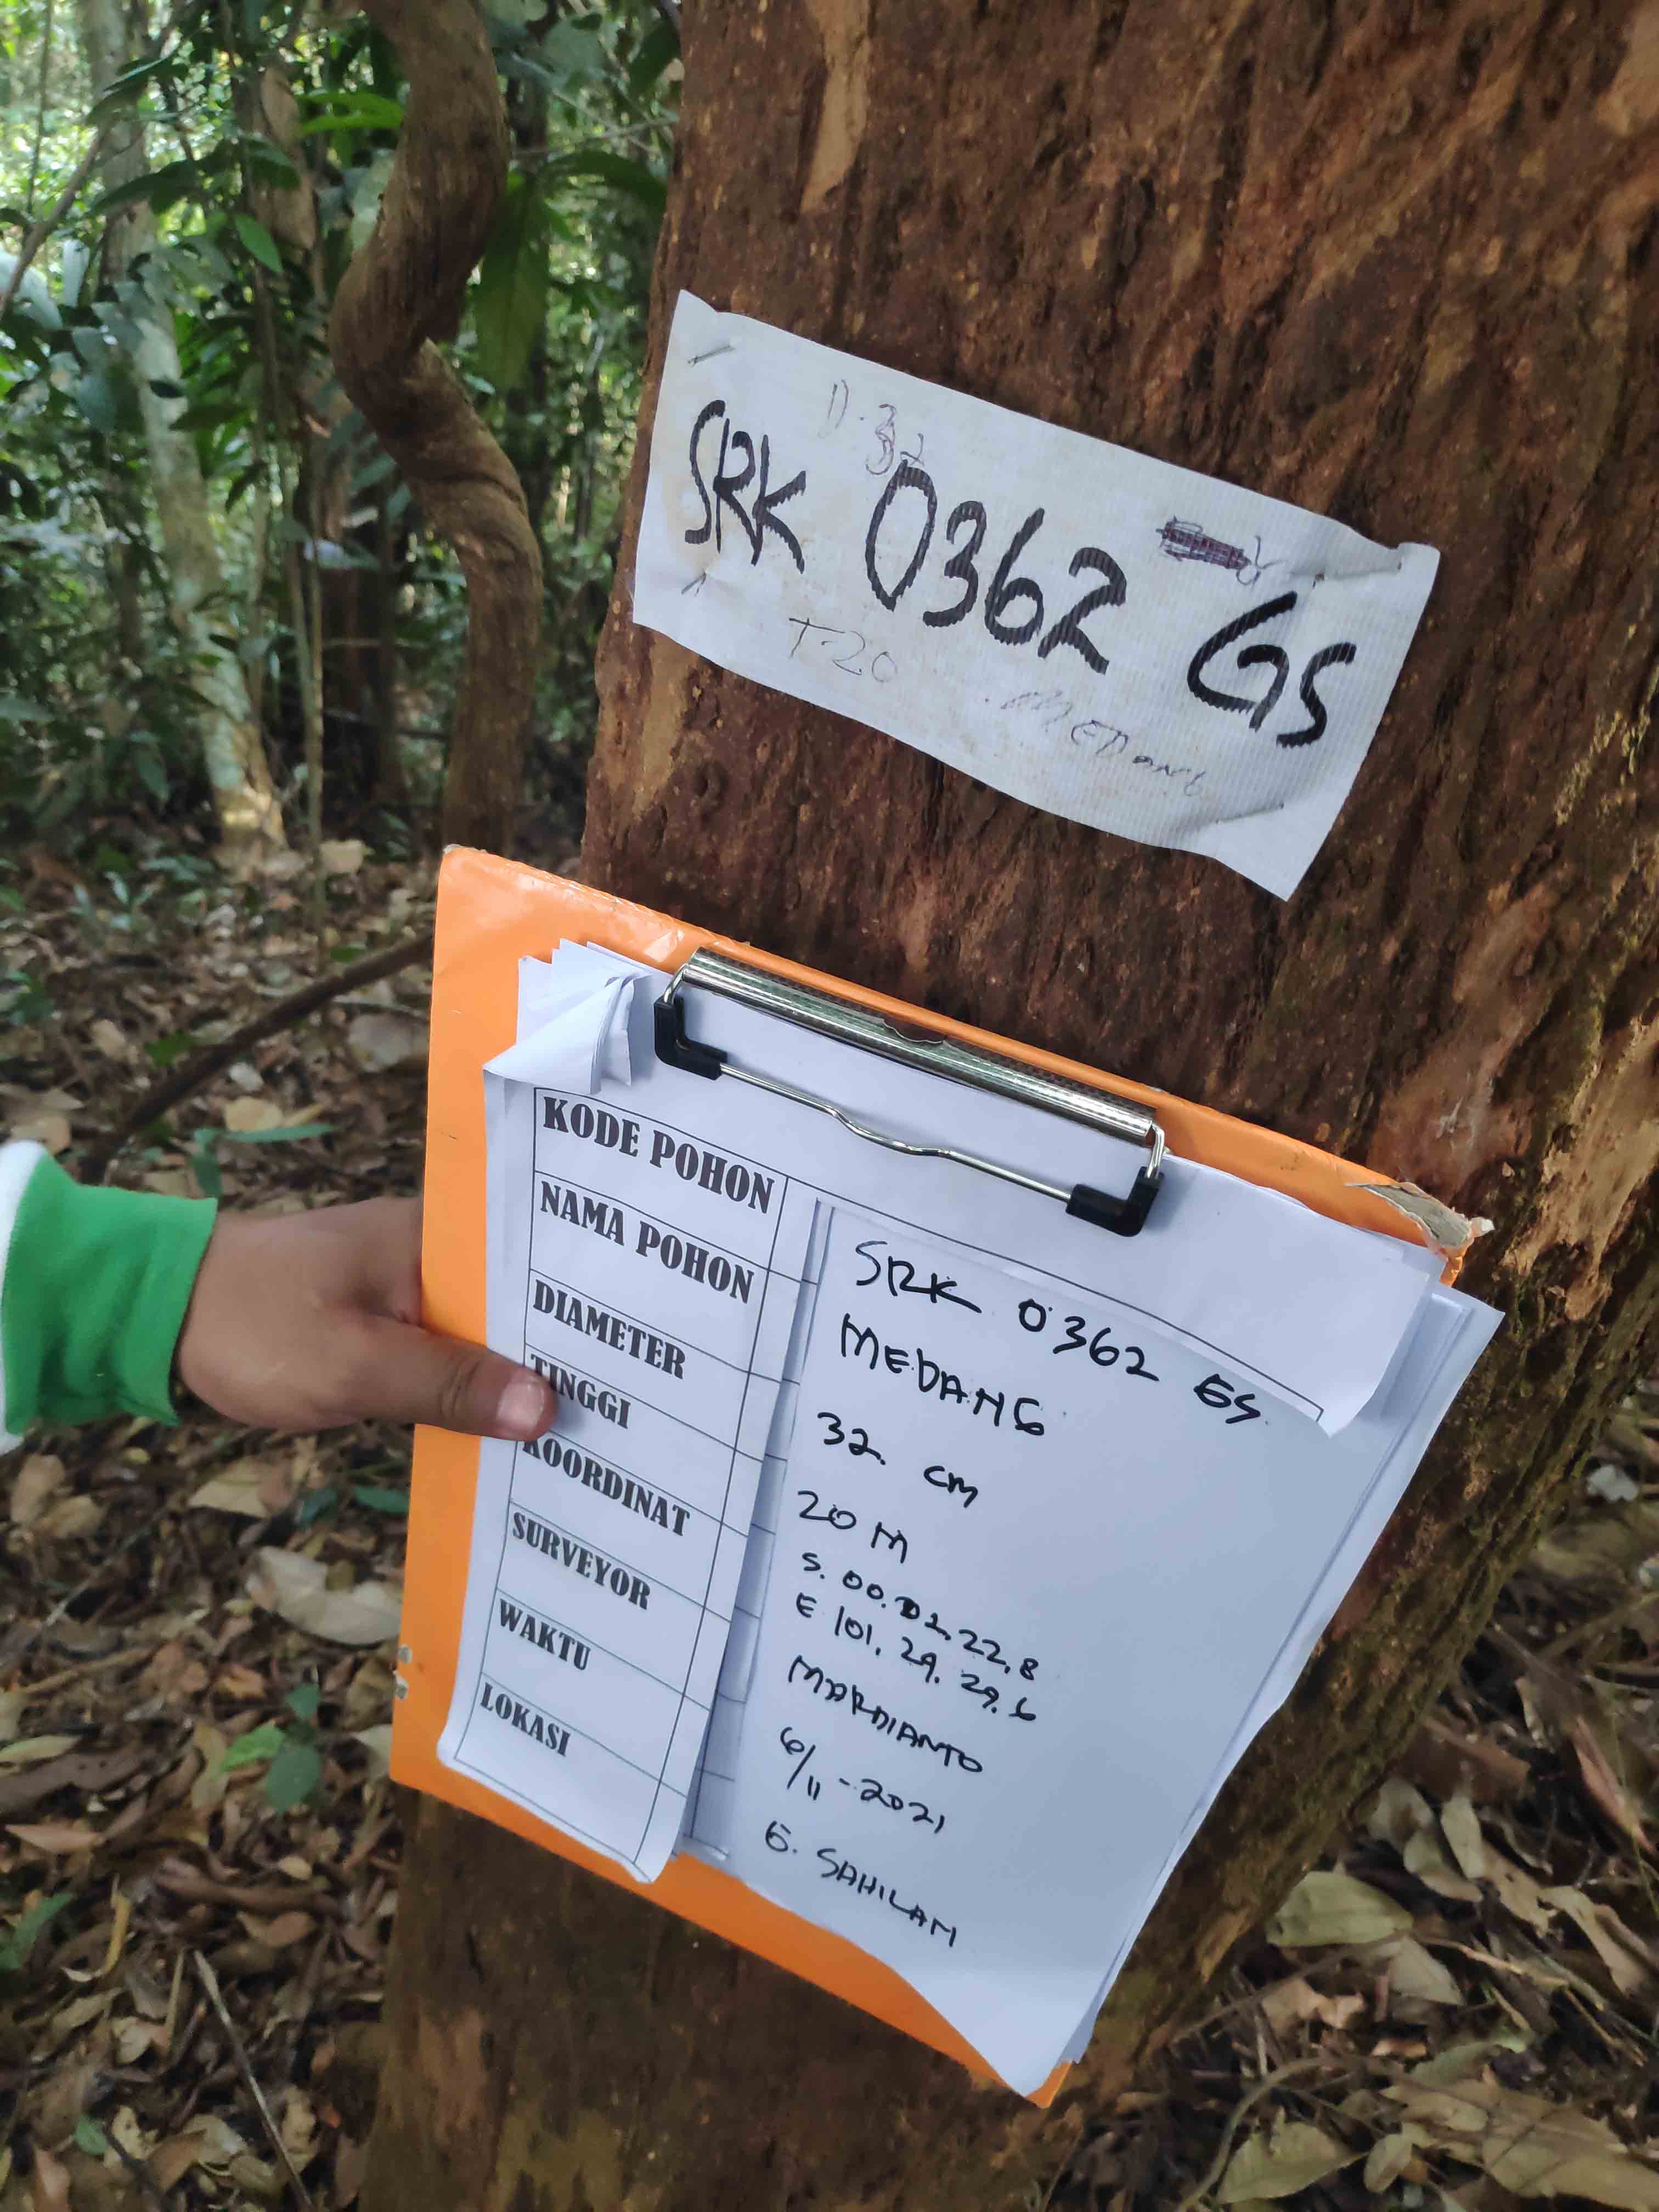 D.32
SRK 0362 GS
T 20
MEDANG
KODE POHON
SRK 0362 GS
NAMA POHON
MEDANG
DIAMETER
32 CM
TINGGI
20 M
KOORDINAT
S. 00. 02. 22. 8
E 101. 29. 29. 6
SURVEYOR
MARDIANTO
WAKTU
6/11 - 2021
LOKASI
G. SAHILAN